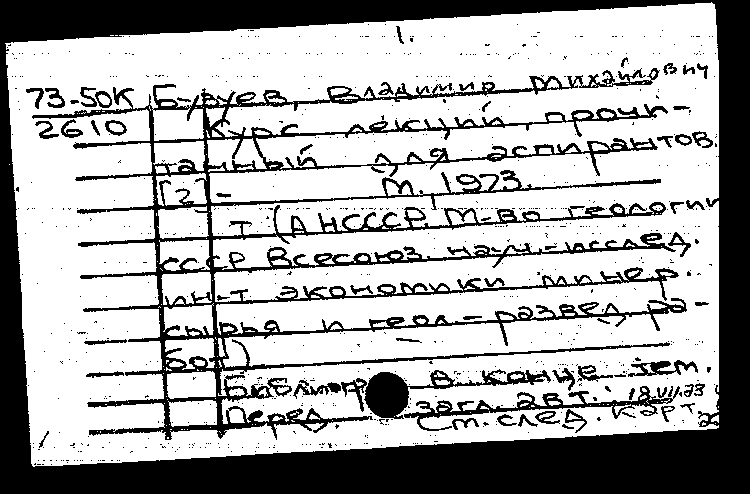 1.
73-50К Буруев, Владимир Михайлович
2610 Курс лекций, прочи-
танный для аспирантов.
[2] - М. 1973.
т (АН СССР. М-во геологии
СССР. Всесоюз. науч.-исслед.
ин-т экономики минер.
сырья и геол-развед. ра-
бот)
Библиогр. в конце тем.
Перед загл. авт.: 18.VII.73
См. след. карт.